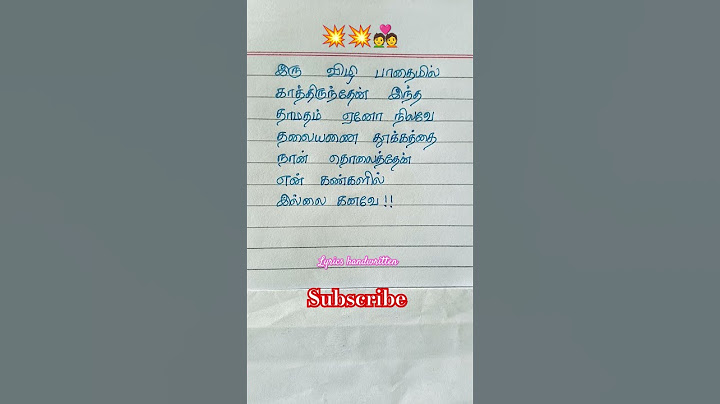 💥💥💑
இரு விழி பாதையில்
காத்திருந்தேன் இந்த
தாமதம் ஏனோ நிலவே
தலையணை தூக்கத்தை
நான் தொலைத்தேன்
என் கண்களில்
இல்லை கனவே!!
Lyrics handwritten
Subscribe